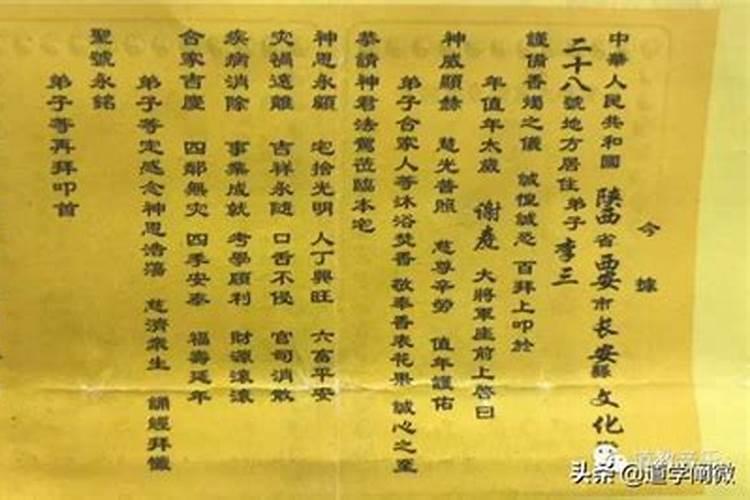 今據
中華人民共和國 陝西省西安市长安縣文化
二十八號地方居住弟子李三
謹備香燭之儀 誠惶誠恐 百拜上叩於
年值年太歲 谢度 大將軍座前上啓曰
神威顯赫 慈光普照 慈尊辛勞 值年護佑
弟子合家人等沐浴焚香 敬奉香表花果 誠心之至
恭請神君法駕莅臨本宅
神恩永顧 宅捨光明 人丁興旺 六富平安
灾禍遠離 吉祥永隨 口舌不侵 官司消散
疾病消除 事業成就 考學順利 財源滾滾
合家吉慶 四鄰無灾 四季安泰 福壽延年
弟子等定感念神恩浩蕩 慈濟衆生 誦經拜懺
聖號永銘
弟子等再拜叩首
头条 @道学阐微